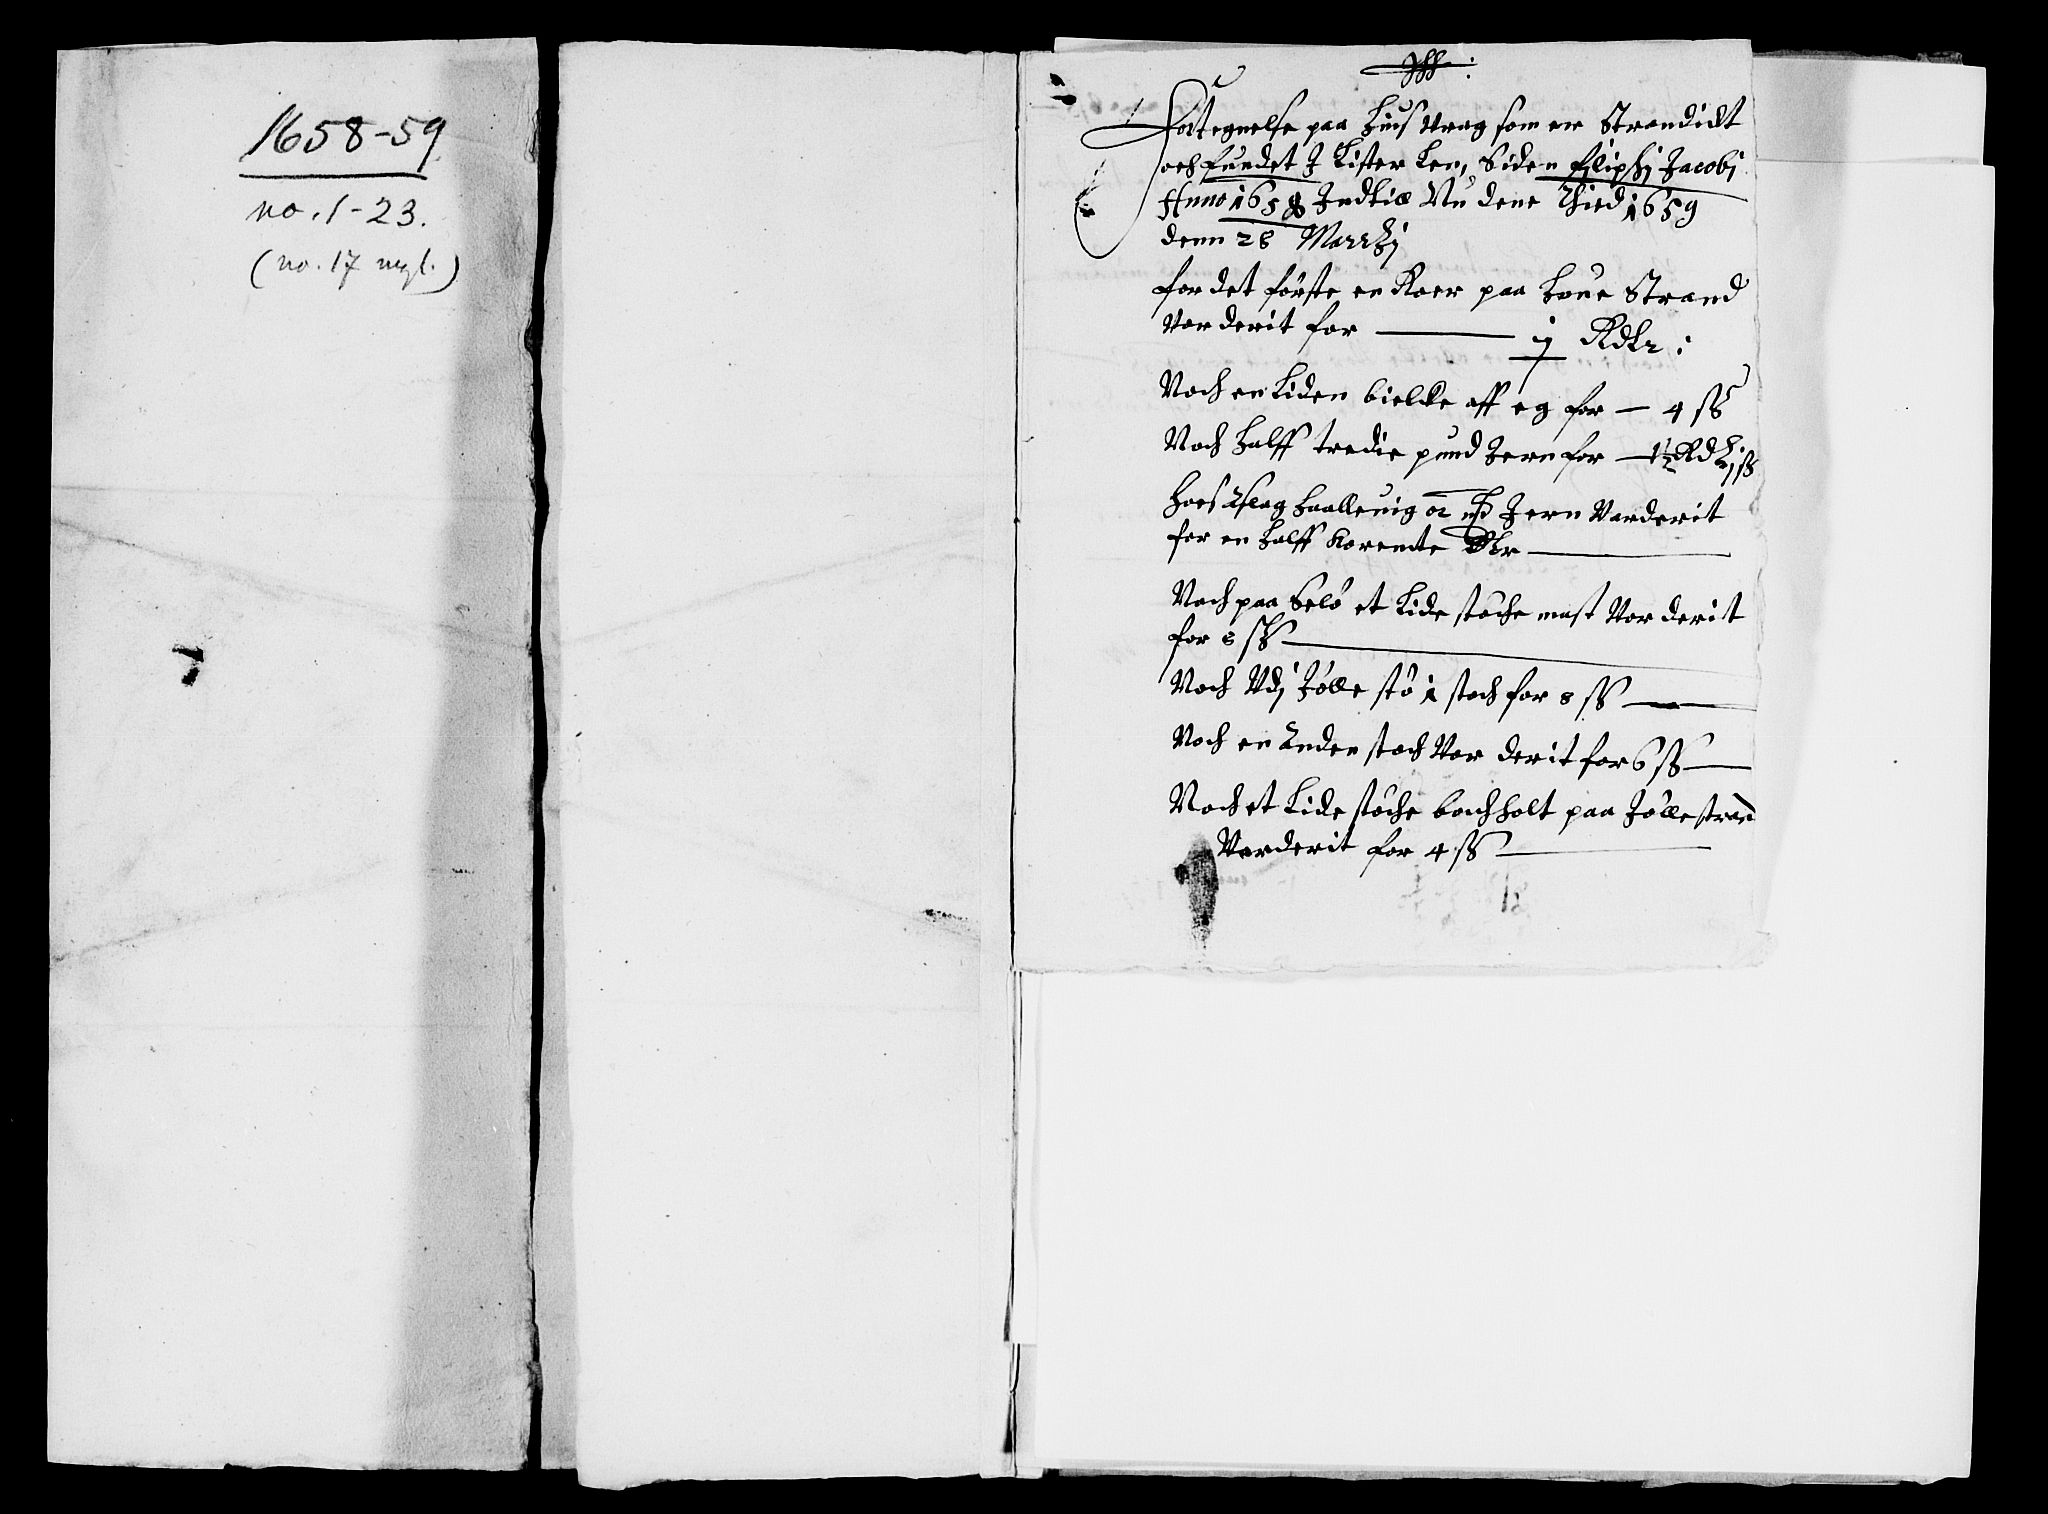 1658-59
no. 1-23.
(no. 17 mgl.)
Fortegnelse paa huis Vrag som er Strandidt
och fundet J Lister Len, Siden Filiphi Jacobi
Anno 1658 Indtil Nu dene Thied 1659
denn 28 Martzij
for det förste en Roer paa Haue Strand
Vorderit for — ij Rdlr:
Noch en Liden bielcke aff eg for — 4 sß
Noch halff tredie pund Jern for — 1½ Rd
hoes Aslag Haalleuig Jern Varderit
for en halff Korente Dlr —
Noch paa Selö et Lide stöche mast Vorderit
for 8 sß —
Noch Vdj Jölle stö 1 stoch for 8 sß —
Noch en Anden stoch Vorderit for 6 sß —
Noch et Lide stöche bochholt paa Jölle strand
Vorderit for 4 sß —